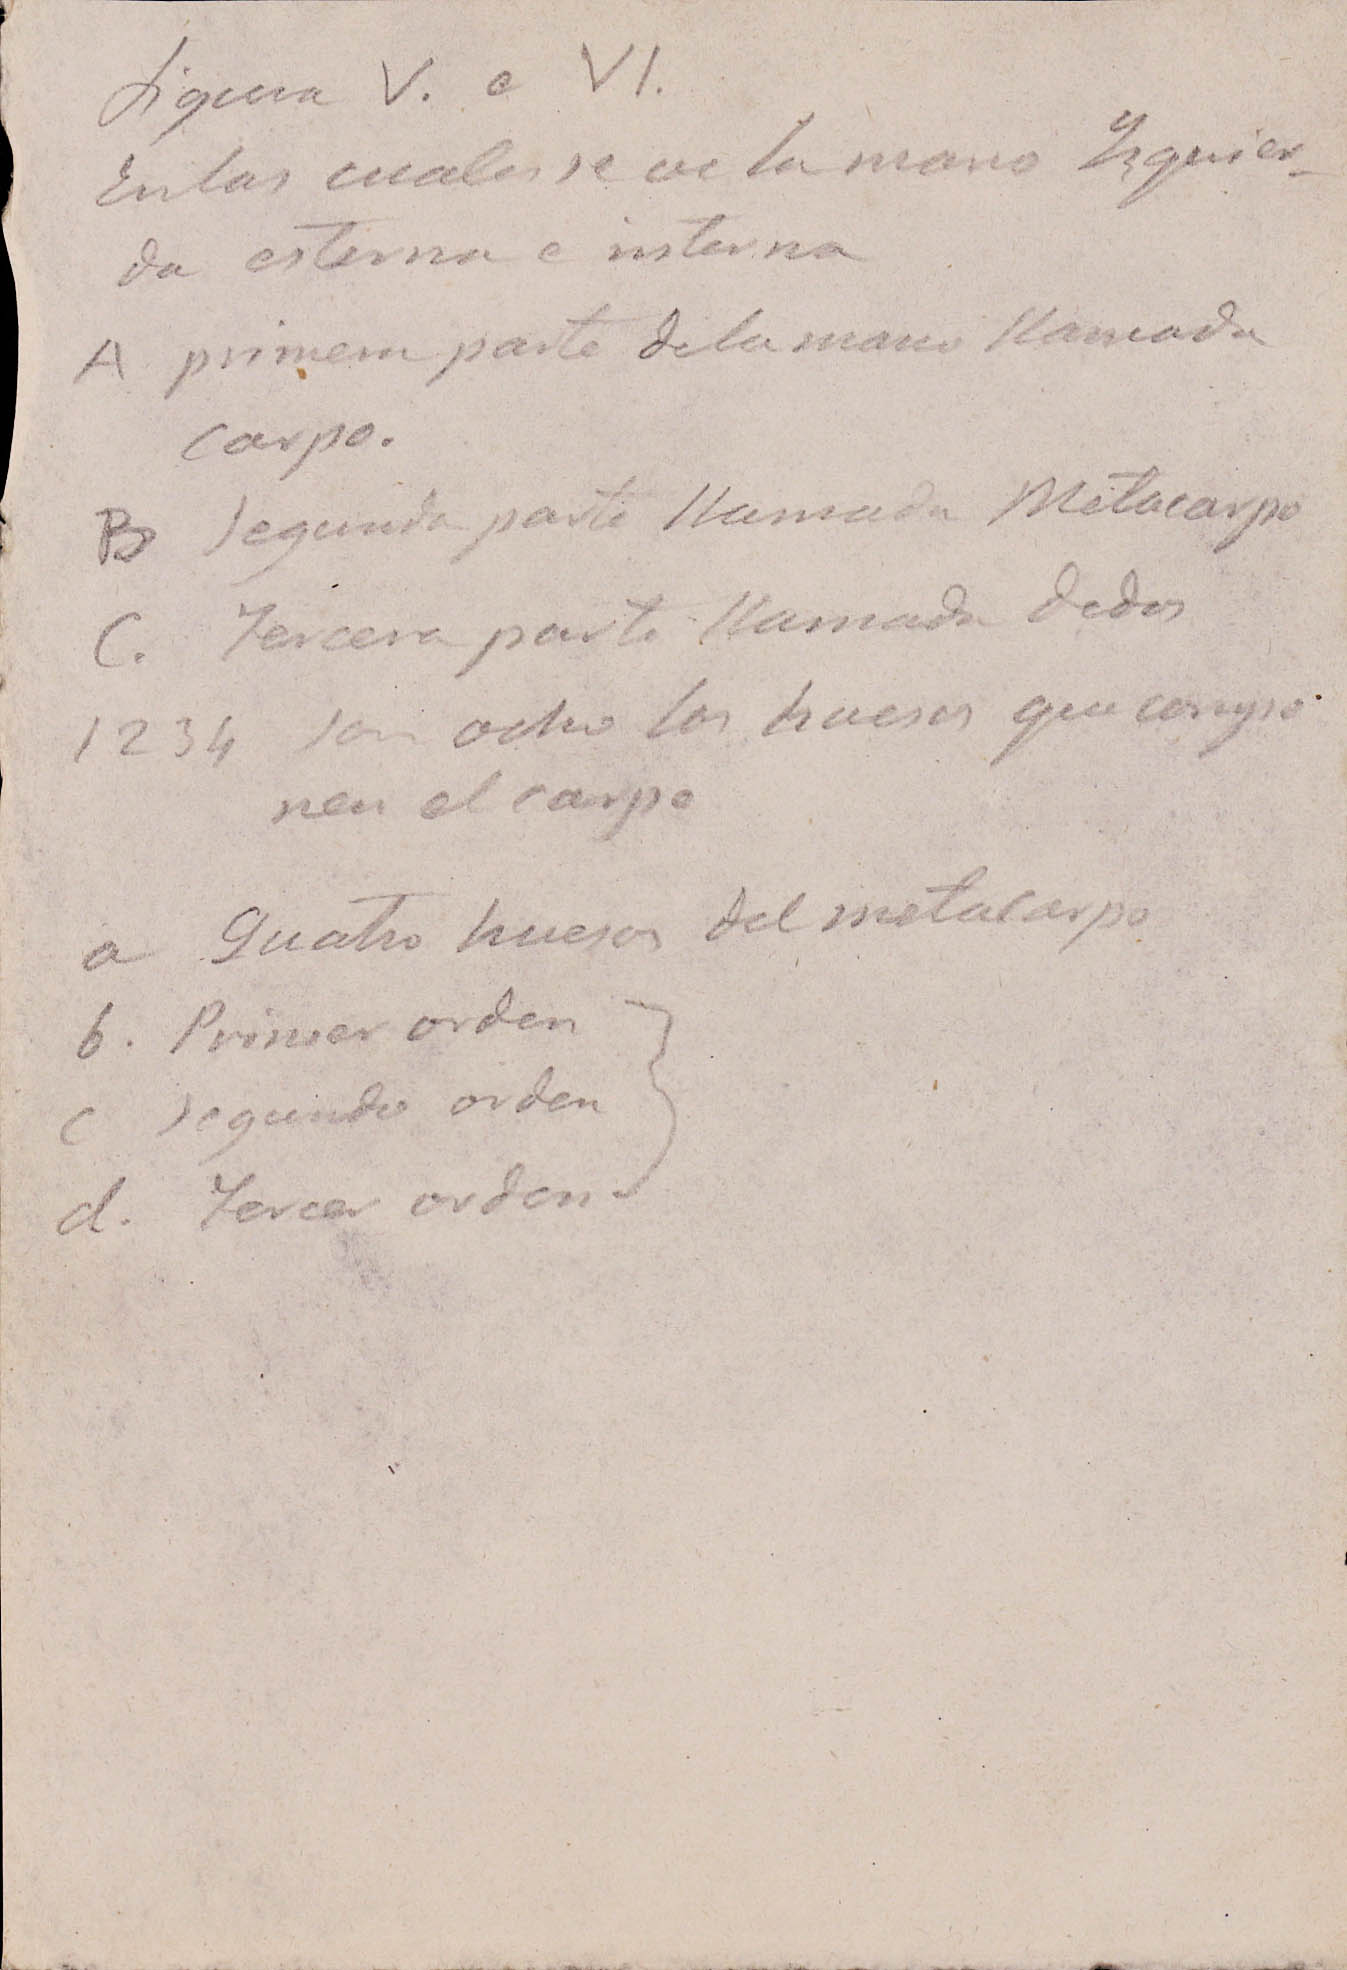 Figura V. e VI.
En las cuales se ve la mano Izquier-
da esterna e interna
A primera parte de la mano llamada
Carpo.
B Segunda parte llamada Metacarpo
C. Tercera parte llamada dedos
1234 son ocho los huesos que compo
nen el carpo
a Quatro huesos del metacarpo
b. Primer orden
c Segundo orden
d. Tercer orden